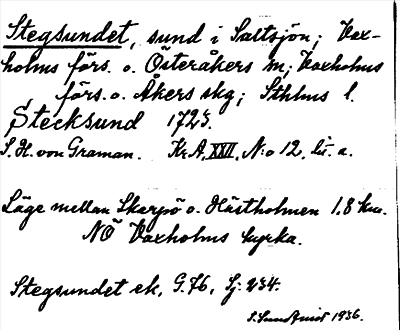 Stegsundet, sund i Saltsjön; Vax-
holms förs. o. Österåkers sn; Vaxholms
förs. o. Åkers skg; Sthlms l.
Stecksund 1723.
S.H. von Graman. Kr.A, XXII, N:o 12, lit. a.
Läge mellan Skarpö o. Hästholmen 1.8 km.
NÖ Vaxholms kyrka.
Stegsundet ek. G.76, Sj. 234.
S. Sundqvist 1936.